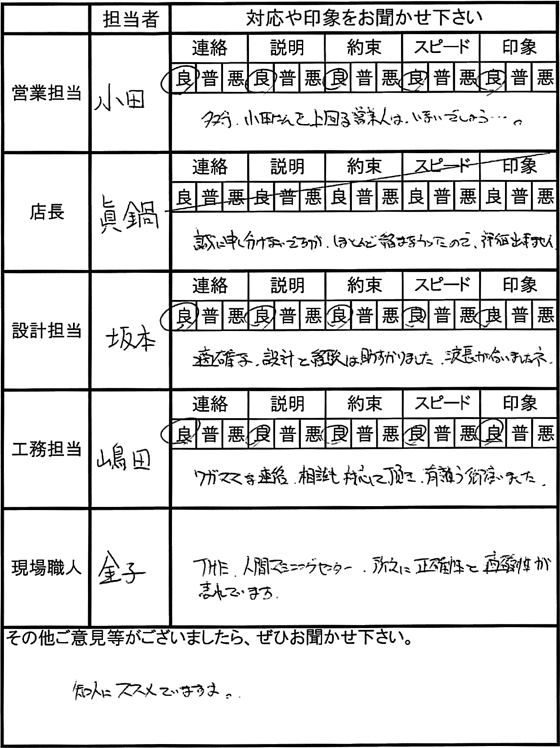 担当者 対応や印象をお聞かせ下さい
営業担当 小田
連絡 説明 約束 スピード 印象
良 普 悪 良 普 悪 良 普 悪 良 普 悪 良 普 悪
多分、小田さんを上回る営業人は、いないでしょう…。
店長 眞鍋
連絡 説明 約束 スピード 印象
良 普 悪 良 普 悪 良 普 悪 良 普 悪 良 普 悪
誠に申し分けないですが、ほとんど 、評価出来ません
設計担当 坂本
連絡 説明 約束 スピード 印象
良 普 悪 良 普 悪 良 普 悪 良 普 悪 良 普 悪
適確な、設計と経験は助かりました。波長が合いましたネ。
工務担当 嶋田
連絡 説明 約束 スピード 印象
良 普 悪 良 普 悪 良 普 悪 良 普 悪 良 普 悪
ワガママな連絡、相談も対応して頂き、有難う御座いました。
現場職人 金子
THE、人間マシニングセンター。 正確性と
されています。
その他ご意見等がございましたら、ぜひお聞かせ下さい。
知人にススメていますよ。